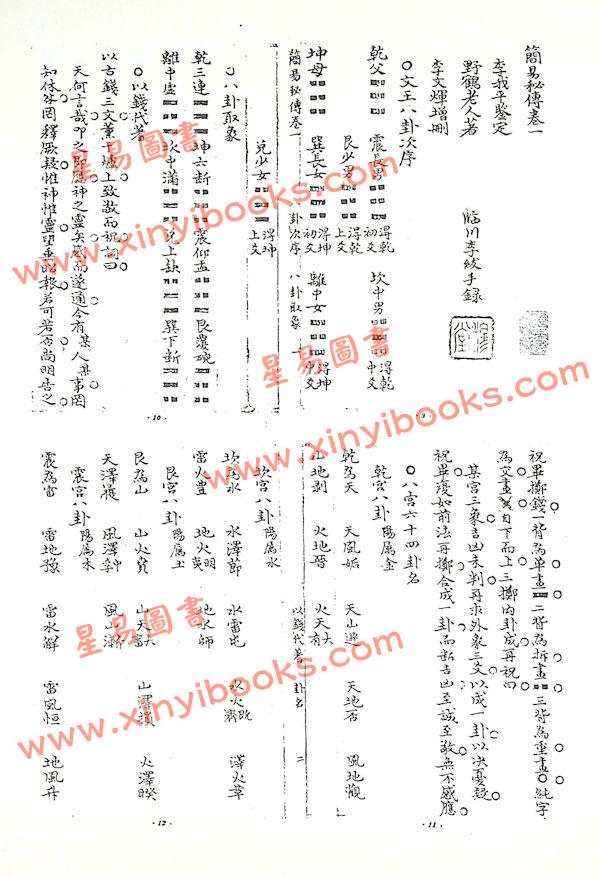 簡易秘傳卷一
李我平鑒定
野鶴老人著
李文輝增刪
臨川李紱手録
○文王八卦次序
乾父
震長男 得乾初爻
坎中男 得乾中爻
艮少男 得乾上爻
坤母
巽長女 得坤初爻
離中女 得坤中爻
簡易秘傳卷一 卦次序 八卦取象 一
兌少女 得坤上爻
○八卦取象
乾三連 坤六斷 震仰盂 艮覆碗
離中虛 坎中滿 兌上缺 巽下斷
○以錢代蓍
以古錢三文薰于爐上致敬而祝詞曰
天何言哉叩之即應神之靈矣感而遂通今有某人某事罔
知休咎罔釋厥疑惟神惟靈望垂昭報若可若否尚明告之
·10·
·9·
祝畢擲錢一背為單畫 二背為拆畫 三背為重畫○純字
為交畫X自下而上三擲內卦成再祝曰
某宮三象吉凶未判再求外象三爻以成一卦以決憂疑
祝畢復如前法再擲合成一卦而斷吉凶至誠至敬無不感應
○八宮六十四卦名
乾宮八卦 陽屬金
乾為天 天風姤 天山遯 天地否 風地觀
山地剝 火地晉 火天大有
以錢代蓍 卦名 二
坎宮八卦 陽屬水
坎為水 水澤節 水雷屯 水火既濟 澤火革
雷火豐 地火明夷 地水師
艮宮八卦 陽屬土
艮為山 山火賁 山天大畜 山澤損 火澤睽
天澤履 風澤中孚 風山漸
震宮八卦 陽屬木
震為雷 雷地豫 雷水解 雷風恒 地風升
·12·
·11·
星易圖書
www.xinyibooks.com
星易圖書
www.xinyibooks.com
星易圖書
www.xinyibooks.com
星易圖書
www.xinyibooks.com